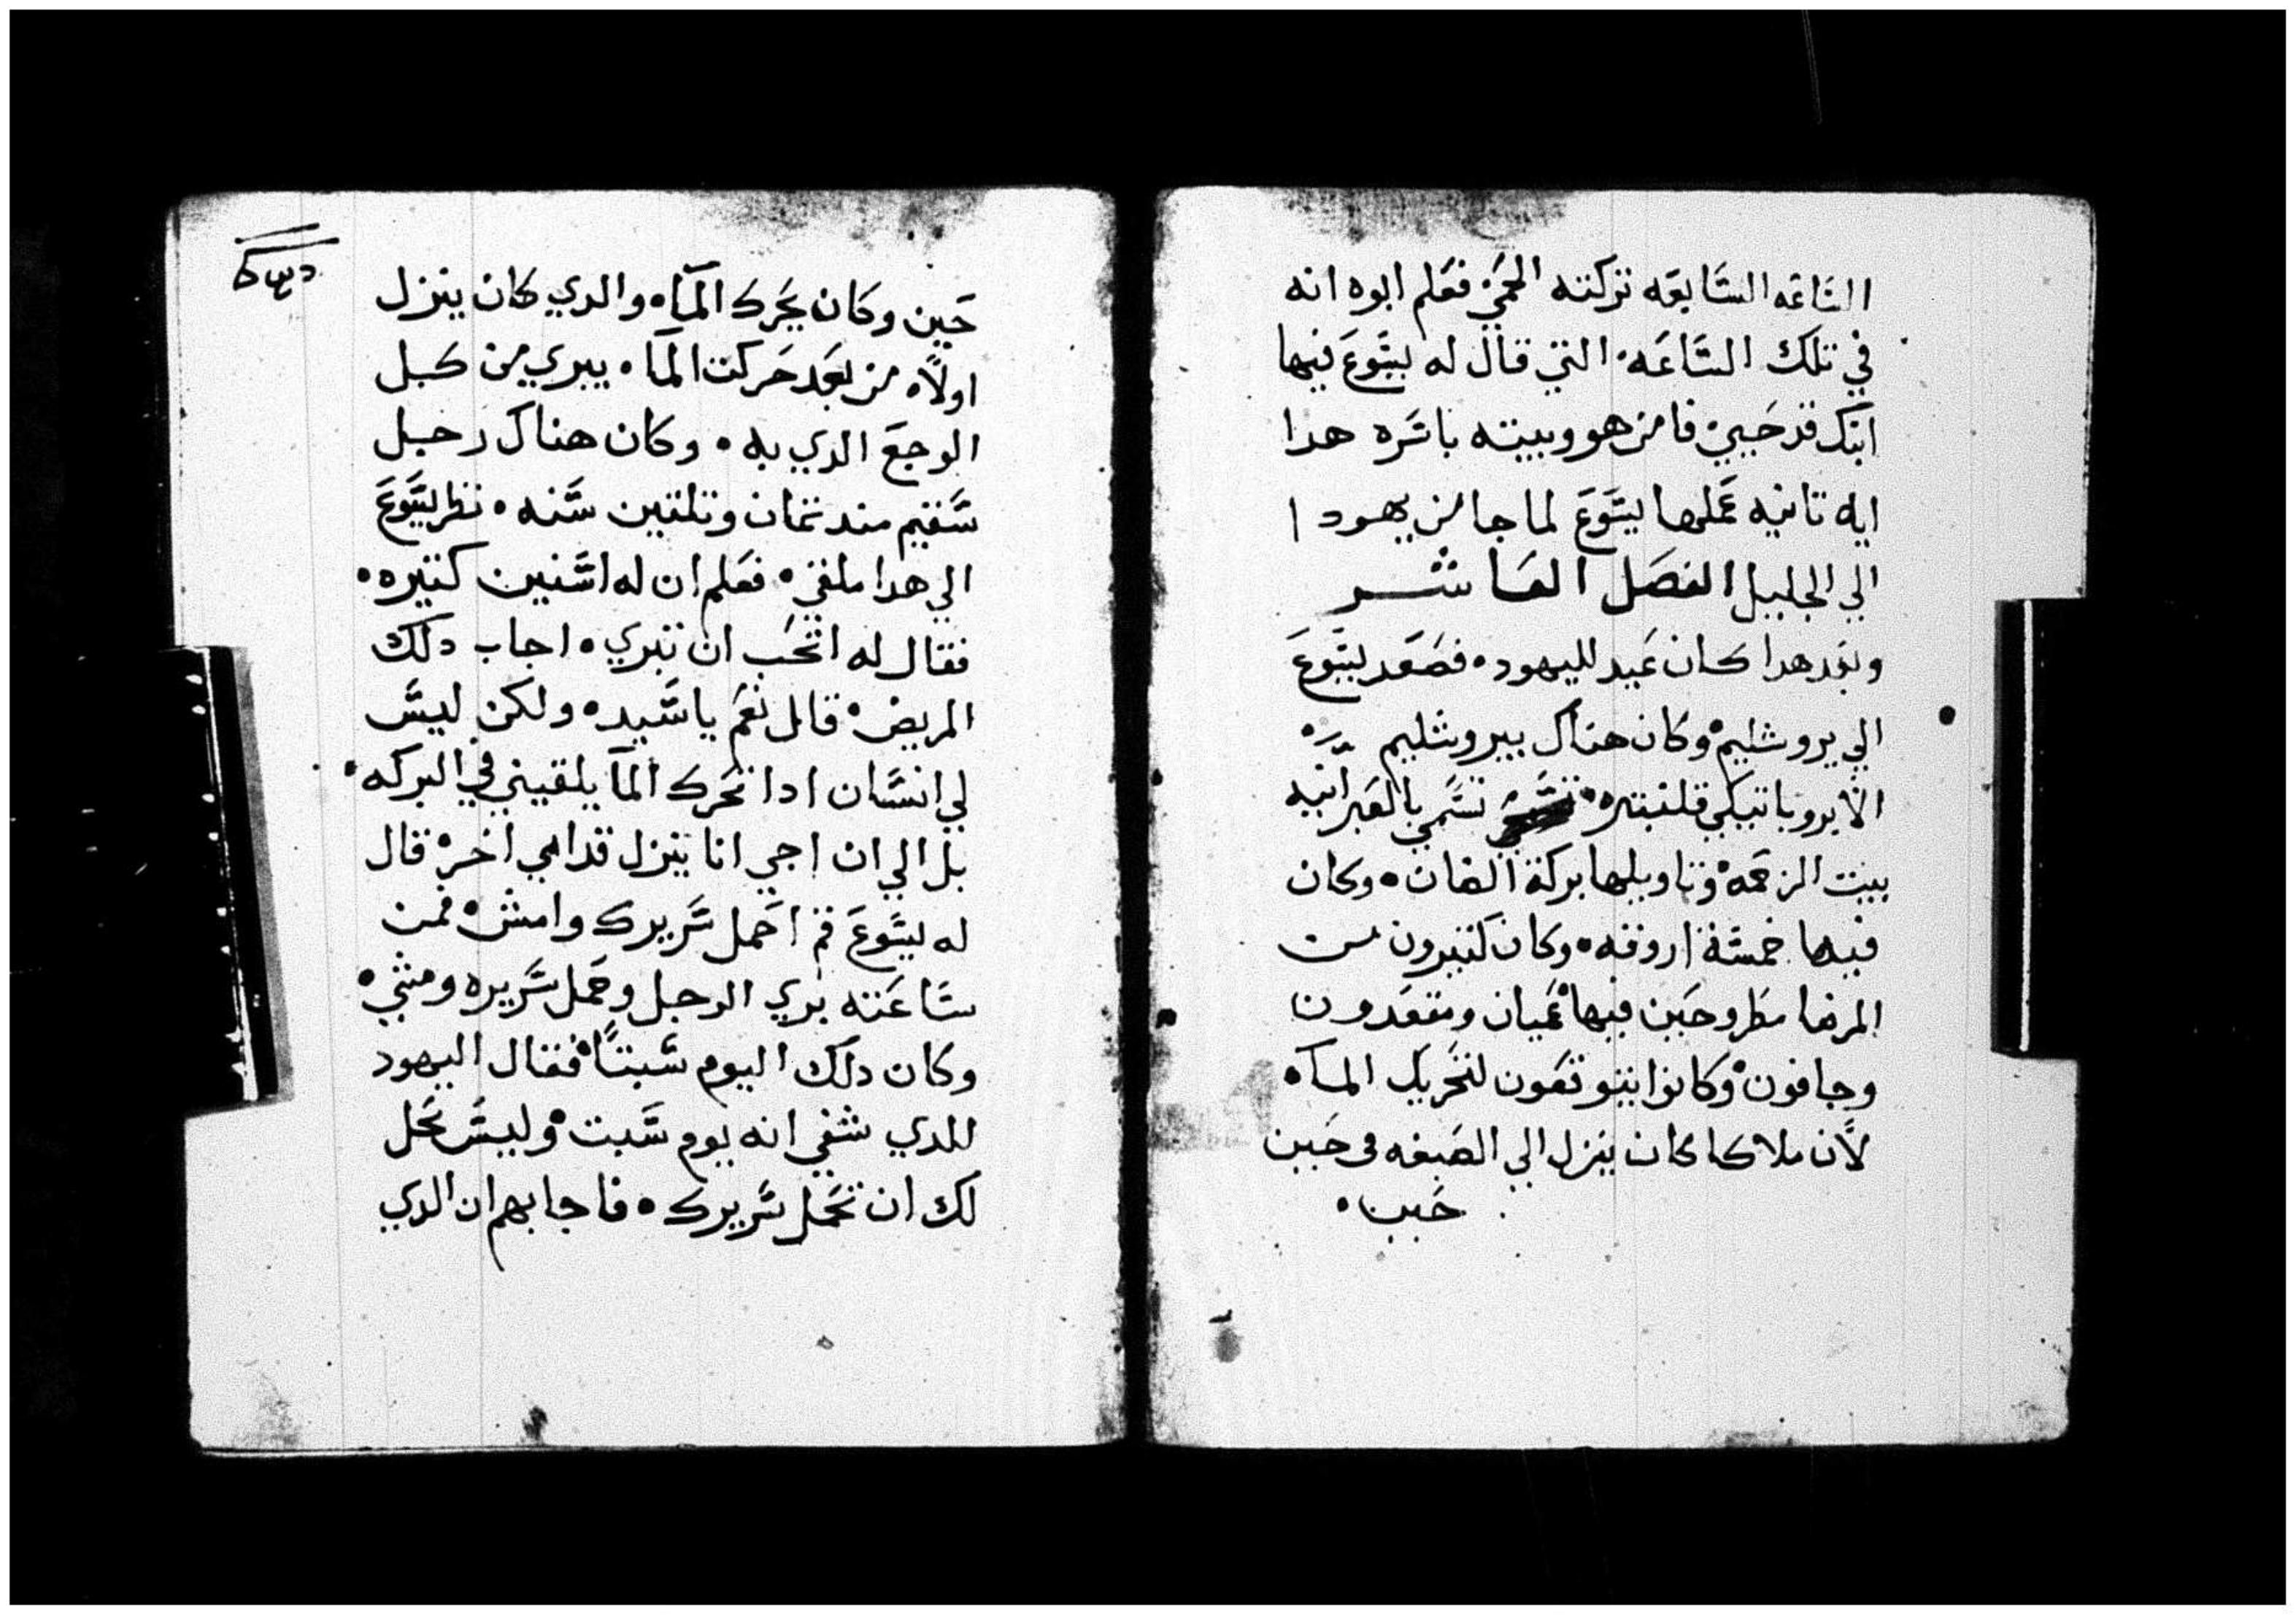 الساعه السابعه تركته الحمي فعلم ابوه انه
في تلك الساعه التي قال له يسوع فيها
ابنك قد حيي فامن هو وبيته باسره هدا
ايه تانيه عملها يسوع لما جا من يهودا
الي الجليل الفصل العاشر
وبعد هدا كان عيد لليهود فصعد يسوع
الي يروشليم وكان هناك بيروشليم
الايروباتيكي قلنبتره تسمي بالعبرانيه
بيت الرحمه وتاويلها بركة الضان وكان
فيها خمسة اروقه وكان كتيرون من
المرضا مطروحين فيها عميان ومقعدون
وجافون وكانوا يتوقعون لتحريك الماء
لان ملاكا كان ينزل الي الصبغه في حين
حين
حين وكان يحرك الماء والدي كان ينزل
اولا من بعد حركت الما يبري من كل
الوجع الدي به وكان هناك رجل
سقيم مند تمان وتلتين سنه نظر يسوع
الي هدا ملقي فعلم ان له اسنين كتيره
فقال له اتحب ان تبري اجاب دلك
المريض قال نعم يا سيد ولكن ليس
لي انسان ادا تحرك الما يلقيني في البركه
بل الي ان اجي انا ينزل قدامي اخر قال
له يسوع قم احمل سريرك وامش فمن
ساعته بري الرجل وحمل سريره ومشي
وكان دلك اليوم سبتا فقال اليهود
للدي شفي انه يوم سبت وليس يحل
لك ان تحمل سريرك فاجابهم ان الدي